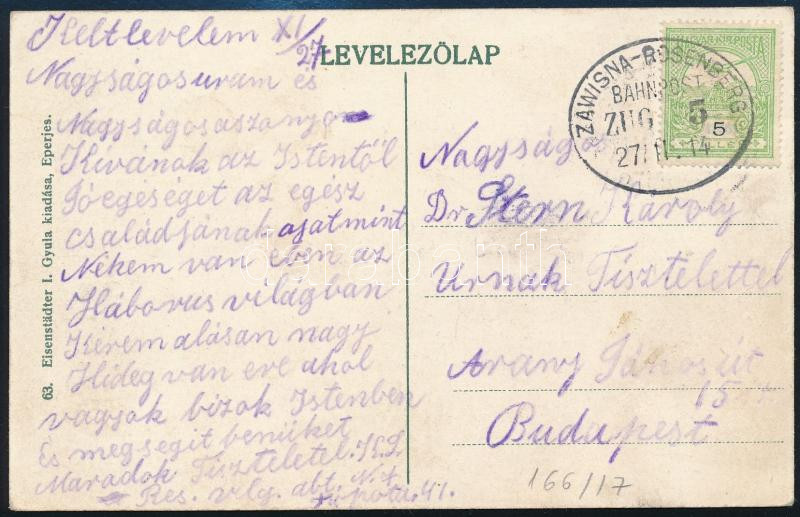 LEVELEZŐLAP
Kelt levelem XI/27
Nagyságos uram és
Nagyságos aszonyo
Kivánok az Istentől
Jó egeséget az egész
családjának ojat mint
Nékem van eben az
Háborus világban
Kérem alásan nagy
Hideg van ere ahol
vagyok bizok Istenben
És megsegit benüket
Maradok Tiszteletel. K.L.
Res. vlg. abt. N. 4
Tá pota. 41.
63. Eisenstädter I. Gyula kiadása, Eperjes.
MAGYAR KIR. POSTA
5
ZAWISNA-ROSENBERG
BAHNPOST
ZUG 5
27/11.14
Nagyságos
Dr Stern Károly
Urnak Tisztelettel
Arany János út
15
Budapest
166/17